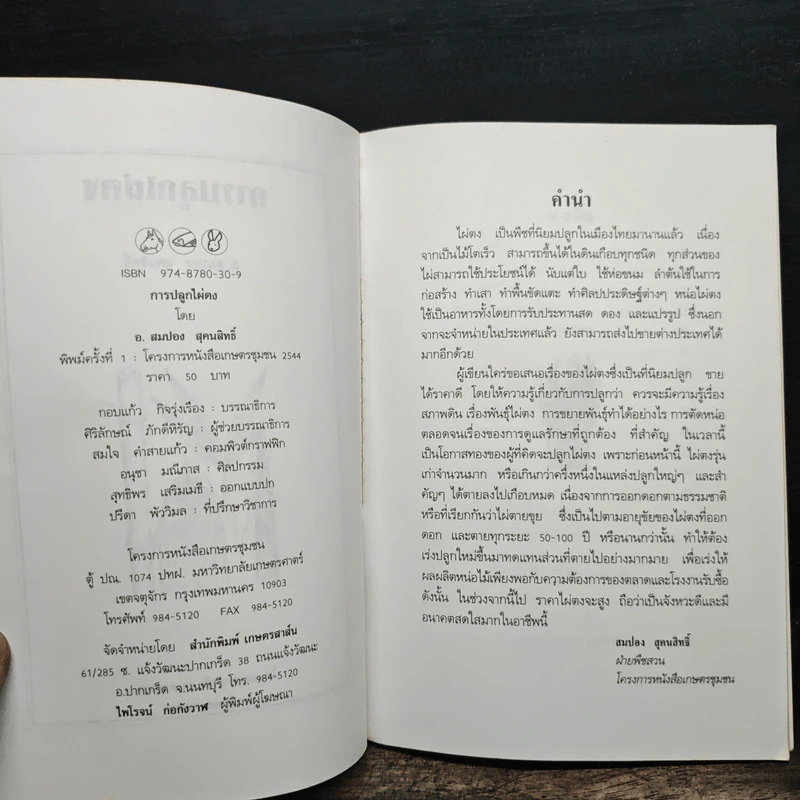 ISBN 974-8780-30-9
การปลูกไผ่ตง
โดย
อ. สมปอง สุคนสิทธิ์
พิมพ์ครั้งที่ 1 : โครงการหนังสือเกษตรชุมชน 2544
ราคา 50 บาท
กอบแก้ว กิจรุ่งเรือง : บรรณาธิการ
ศิริลักษณ์ ภักดีหิรัญ : ผู้ช่วยบรรณาธิการ
สมใจ คำสายแก้ว : คอมพิวต์กราฟฟิก
อนุชา มณีภาส : ศิลปกรรม
สุทธิพร เสริมเมธี : ออกแบบปก
ปรีดา พัววิมล : ที่ปรึกษาวิชาการ
โครงการหนังสือเกษตรชุมชน
ตู้ ปณ. 1074 ปทฝ. มหาวิทยาลัยเกษตรศาตร์
เขตจตุจักร กรุงเทพมหานคร 10903
โทรศัพท์ 984-5120 FAX 984-5120
จัดจำหน่ายโดย สำนักพิมพ์ เกษตรสาส์น
61/285 ซ. แจ้งวัฒนะปากเกร็ด 38 ถนนแจ้งวัฒนะ
อ.ปากเกร็ด จ.นนทบุรี โทร. 984-5120
ไพโรจน์ ก่อกังวาฬ ผู้พิมพ์ผู้โฆษณา
คำนำ
ไผ่ตง เป็นพืชที่นิยมปลูกในเมืองไทยมานานแล้ว เนื่อง
จากเป็นไม้โตเร็ว สามารถขึ้นได้ในดินเกือบทุกชนิด ทุกส่วนของ
ไผ่สามารถใช้ประโยชน์ได้ นับแต่ใบ ใช้ห่อขนม ลำต้นใช้ในการ
ก่อสร้าง ทำเสา ทำพื้นขัดแตะ ทำศิลปประดิษฐ์ต่างๆ หน่อไผ่ตง
ใช้เป็นอาหารทั้งโดยการรับประทานสด ดอง และแปรรูป ซึ่งนอก
จากจะจำหน่ายในประเทศแล้ว ยังสามารถส่งไปขายต่างประเทศได้
มากอีกด้วย
ผู้เขียนใคร่ขอเสนอเรื่องของไผ่ตงซึ่งเป็นที่นิยมปลูก ขาย
ได้ราคาดี โดยให้ความรู้เกี่ยวกับการปลูกว่า ควรจะมีความรู้เรื่อง
สภาพดิน เรื่องพันธุ์ไผ่ตง การขยายพันธุ์ทำได้อย่างไร การตัดหน่อ
ตลอดจนเรื่องของการดูแลรักษาที่ถูกต้อง ที่สำคัญ ในเวลานี้
เป็นโอกาสทองของผู้ที่คิดจะปลูกไผ่ตง เพราะก่อนหน้านี้ ไผ่ตงรุ่น
เก่าจำนวนมาก หรือเกินกว่าครึ่งหนึ่งในแหล่งปลูกใหญ่ๆ และสำ
คัญๆ ได้ตายลงไปเกือบหมด เนื่องจากการออกดอกตามธรรมชาติ
หรือที่เรียกกันว่าไผ่ตายขุย ซึ่งเป็นไปตามอายุขัยของไผ่ตงที่ออก
ดอก และตายทุกระยะ 50-100 ปี หรือนานกว่านั้น ทำให้ต้อง
เร่งปลูกใหม่ขึ้นมาทดแทนส่วนที่ตายไปอย่างมากมาย เพื่อเร่งให้
ผลผลิตหน่อไม้เพียงพอกับความต้องการของตลาดและโรงงานรับซื้อ
ดังนั้น ในช่วงจากนี้ไป ราคาไผ่ตงจะสูง ถือว่าเป็นจังหวะดีและมี
อนาคตสดใสมากในอาชีพนี้
สมปอง สุคนสิทธิ์
ฝ่ายพืชสวน
โครงการหนังสือเกษตรชุมชน